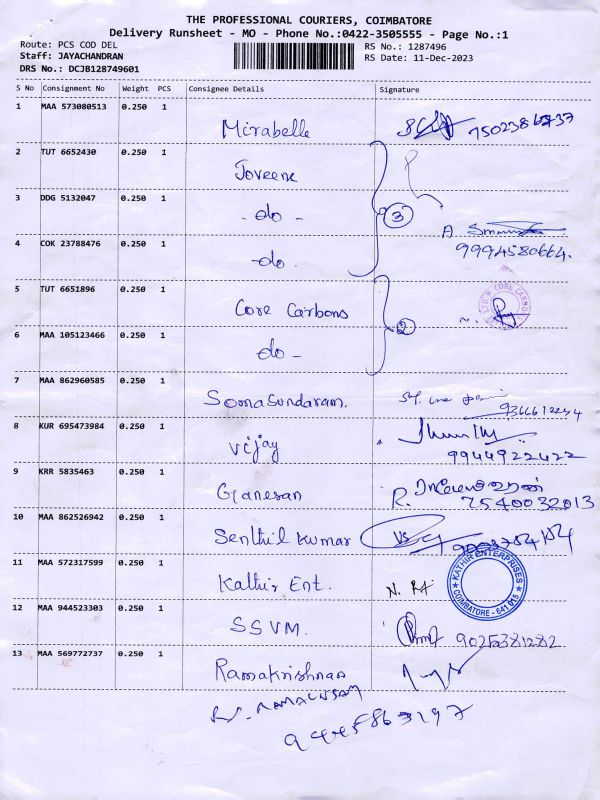 THE PROFESSIONAL COURIERS, COIMBATORE
Delivery Runsheet - MO - Phone No.:0422-3505555 - Page No.:1
Route: PCS COD DEL
RS No.: 1287496
Staff: JAYACHANDRAN
RS Date: 11-Dec-2023
DRS No.: DCJB128749601
S No Consignment No Weight PCS Consignee Details Signature
1 MAA 573080513 0.250 1 Mirabelle
2 TUT 6652430 0.250 1 Joveene
3 DDG 5132047 0.250 1 - do - 3
4 COK 23788476 0.250 1 - do - 9994580664.
5 TUT 6651896 0.250 1 Core Carbons
6 MAA 105123466 0.250 1 - do - 2
7 MAA 862960585 0.250 1 Somasundaram.
8 KUR 695473984 0.250 1 Vijay 9944922422
9 KRR 5835463 0.250 1 Ganesan R. 7540032013
10 MAA 862526942 0.250 1 Senthil Kumar
11 MAA 572317599 0.250 1 Kathir Ent. KATHIR ENTERPRISES COIMBATORE - 641 015
12 MAA 944523303 0.250 1 SSVM. 9025381282
13 MAA 569772737 0.250 1 Ramakrishnan
9445863197